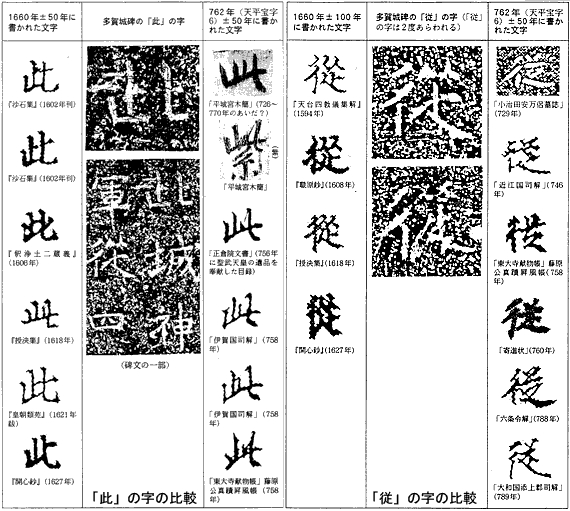 1660年±50年に
書かれた文字
多賀城碑の「此」の字
762年(天平宝字
6)±50年に書か
れた文字
此
『沙石集』(1602年刊)
此
『沙石集』(1602年刊)
此
『釈浄土二蔵義』
(1606年)
此
『授決集』(1618年)
此
『皇朝類苑』(1621年
跋)
此
『開心鈔』(1627年)
此
軍此
從城
四神
(碑文の一部)
此
「平城宮木簡」(726〜
770年のあいだ?)
紫
(紫)
「平城宮木簡」
此
「正倉院文書」(756年
に聖武天皇の遺品を
奉献した目録)
此
「伊賀国司解」(758
年)
此
「伊賀国司解」(758
年)
此
「東大寺献物帳」藤原
公真蹟屏風帳(758
年)
「此」の字の比較
1660年±100年
に書かれた文字
多賀城碑の「従」の字(「従」
の字は2度あらわれる)
762年(天平宝字
6)±50年に書か
れた文字
從
『天台四教儀集解』
(1594年)
從
(1608年)
從
『授決集』(1618年)
從
『開心鈔』(1627年)
從
從
從
「小治田安万侶墓誌」
(729年)
從
「近江国司解」(746
年)
從
「東大寺献物帳」藤原
公真蹟屏風帳(758
年)
從
「寄進状」(760年)
從
「六条令解」(788年)
從
「大和国添上郡司解」
(789年)
「従」の字の比較